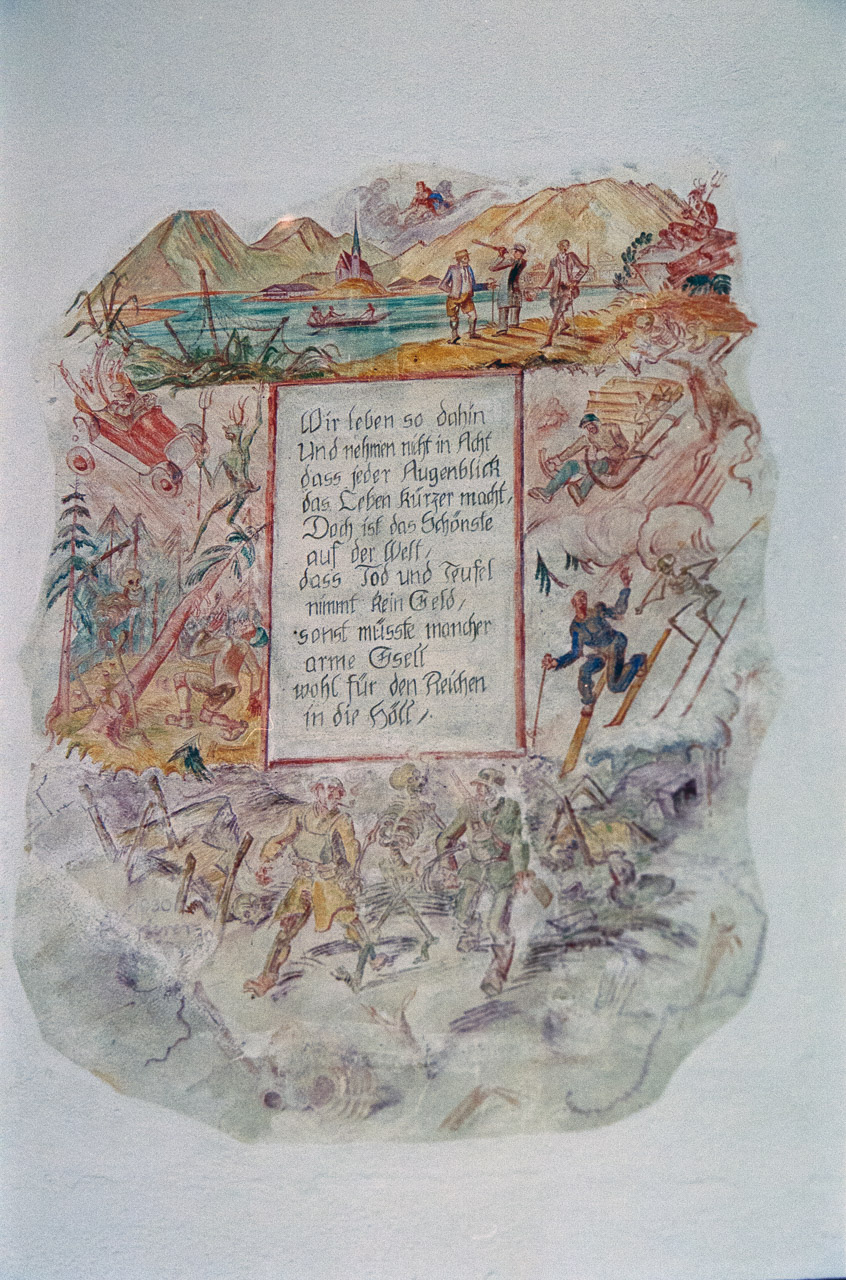 Wir leben so dahin
Und nehmen nicht in Acht
dass jeder Augenblick
das Leben kürzer macht,
Doch ist das Schönste
auf der Welt,
dass Tod und Teufel
nimmt kein Geld,
sonst müsste mancher
arme Gsell
wohl für den Reichen
in die Höll,.